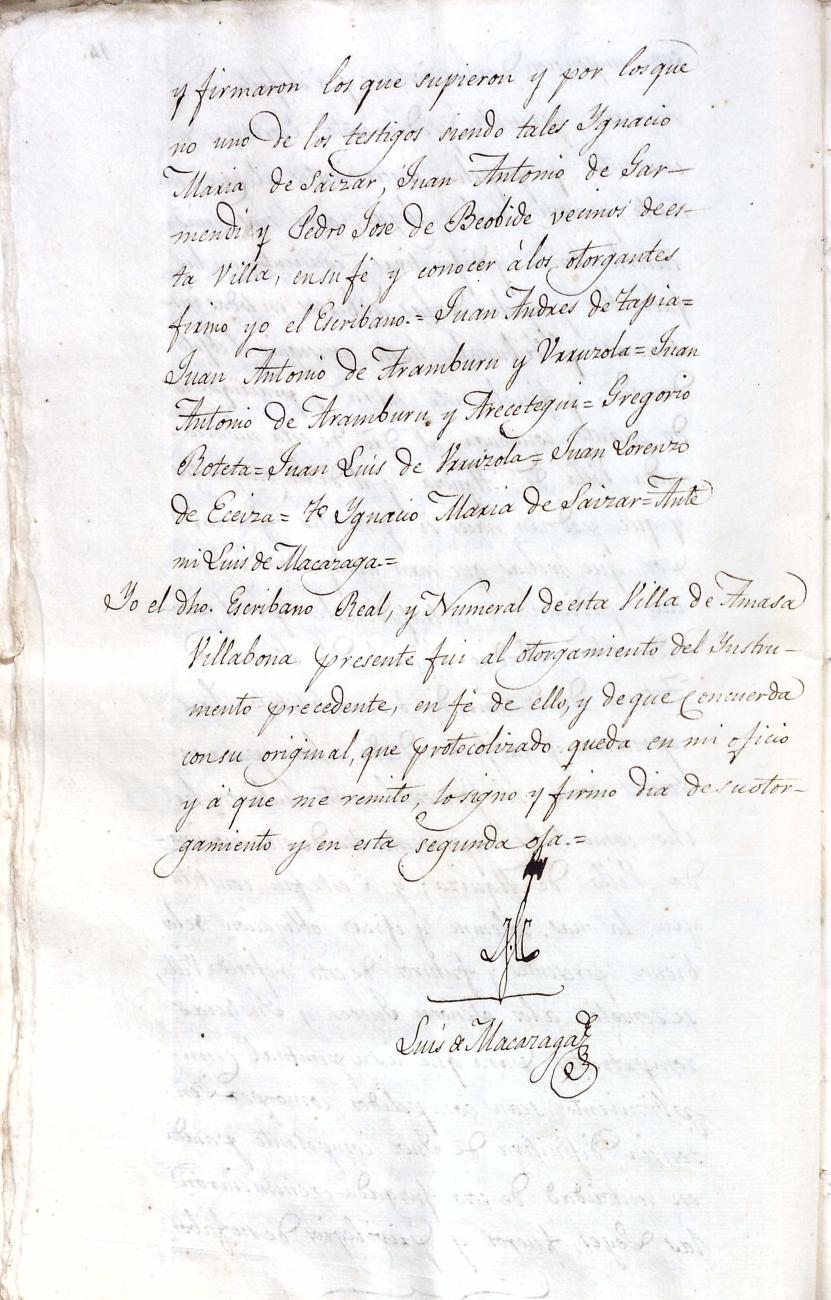 y firmaron los que supieron y por losque
no uno de los testigos siendo tales Ygnacio
Maria de Saizar, Juan Antonio de Gar-
mendi y Pedro Jose de Beobide vecinos dees-
ta Villa, ensu fé y conocer álos otorgantes
firmo yo el Escribano.= Juan Andres de tapia=
Juan Antonio de Aramburu y Urruzola= Juan
Antonio de Aramburu y Arecetegui= Gregorio
Roteta= Juan Luis de Urruzola= Juan Lorenzo
de Eceiza= to Ygnacio Maria de Saizar= Ante
mi Luis de Macazaga.=
Yo el dho. Escribano Real, y Numeral deesta Villa de Amasa
Villabona presente fui al otorgamiento del Ynstru-
mento precedente, en fé de ello, y deque concuerda
consu original, que protocolizado queda en mi oficio
y á que me remito, losigno y firmo dia desuotor-
gamiento y en esta segunda oja.=
Luis de Macazaga